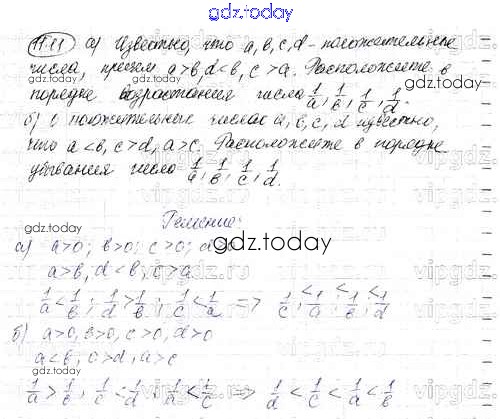 gdz.today
11.11 а) Известно, что a, b, c, d - положительные
числа, причем a > b, d < b, c > a. Расположите в
порядке возрастания числа 1/a, 1/b, 1/c, 1/d.
б) О положительных числах a, b, c, d известно,
что a < b, c > d, a > c. Расположите в порядке
убывания числа 1/a, 1/b, 1/c, 1/d.
gdz.today
Решение:
а) a>0; b>0; c>0; d>0
a>b, d<b, c>a
1/a < 1/b; 1/d > 1/b; 1/c < 1/a => 1/c < 1/a < 1/b < 1/d
б) a>0, b>0, c>0, d>0
a<b, c>d, a>c
1/a > 1/b, 1/c < 1/d, 1/a < 1/c => 1/d < 1/c < 1/a < 1/b
gdz.today